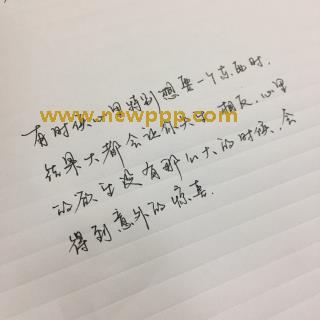 有时候心里特别想要一个东西时,
www.newppp.com
结果大都会让你大口相反,心里
的欲望没有那么大的时候,会
得到意外的惊喜.